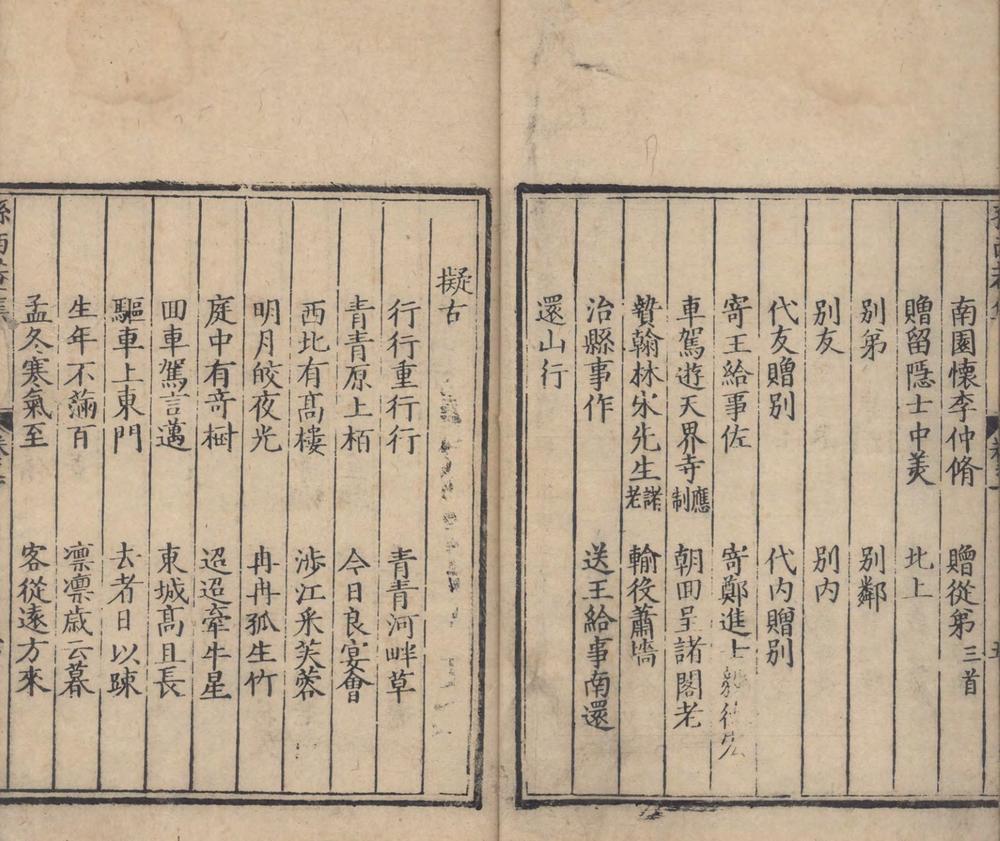 南園懷李仲脩 贈從弟三首
贈留隱士中美 北上
別弟 別鄰
別友 別内
代友贈別 代内贈別
寄王給事佐 寄鄭進士
車駕遊天界寺應制 朝囬呈諸閣老
贄翰林宋先生諸老 輸役蕭墻
治縣事作 送王給事南還
還山行
擬古
行行重行行 青青河畔草
青青原上栢 今日良宴會
西北有髙樓 渉江采芙蓉
明月皎夜光 冉冉孤生竹
庭中有竒樹 迢迢牽牛星
囬車駕言邁 東城髙且長
驅車上東門 去者日以踈
生年不滿百 凛凛歳云暮
孟冬寒氣至 客從逺方來